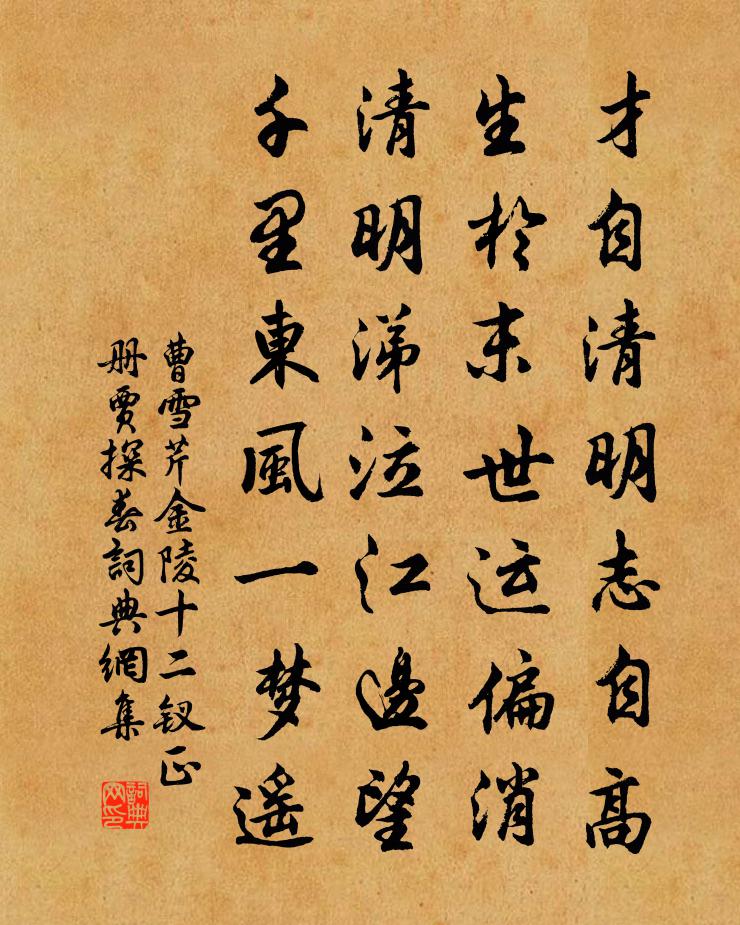 才自清明志自高
生於末世运偏消
清明涕泣江邊望
千里東風一梦遥
曹雪芹金陵十二釵正
册賈探春詞典網集
詞典网印